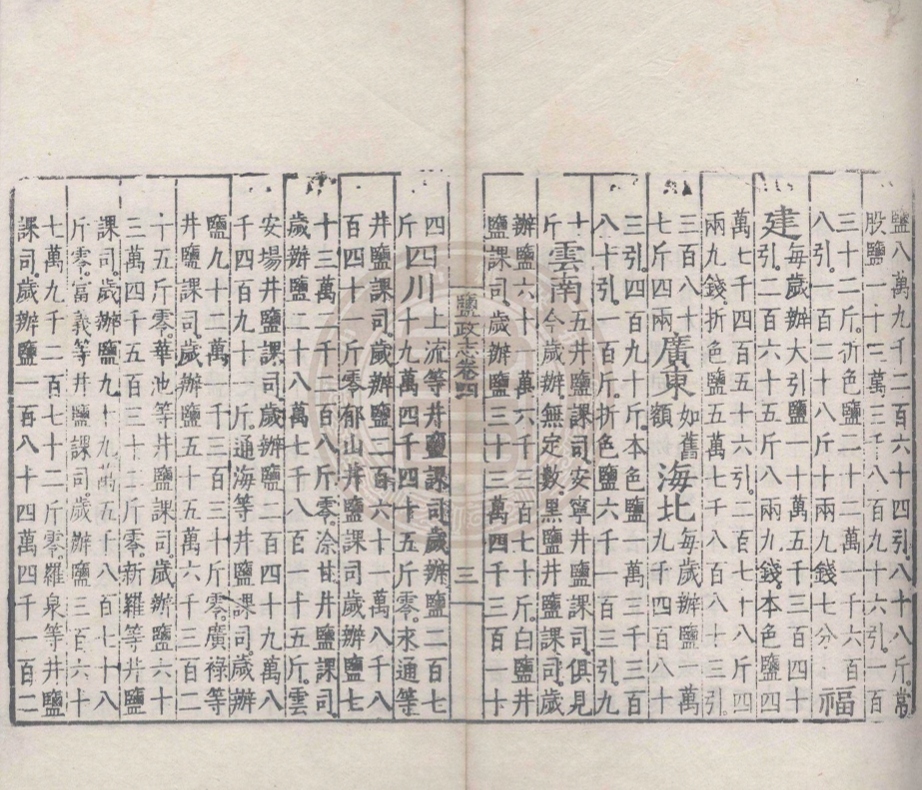 鹽八萬九千二百六十四引。八十八斤。常
股鹽一十二萬三千八百九十六引。一百
三十二斤。折色鹽二十二萬一千六百
八引。一百二十八斤十兩九錢七分。福
建每歲辦大引鹽一十萬五千三百四十
引。二百六十五斤八兩九錢。本色鹽四
萬七千四百五十六引。二百斤四
兩九錢。折色鹽五萬七千八百八十三引。
三百八十
七斤四兩
廣東如舊額
海北每歲辦鹽一萬
九千四百八十
三引。四百九十斤。本色鹽一萬三千三百
八十引。一百斤。折色鹽六千一百三引。九
十
斤
雲南五井鹽課司。安寧井鹽課司。俱見
今歲辦無定數。黑鹽井鹽課司。歲
辦鹽六十一萬六千三百七十斤。白鹽井
鹽課司。歲辦鹽三十三萬四千三十
鹽政志卷四 三
四
斤
四川上流等井鹽課司。歲辦鹽二百七
十九萬四千四十五斤零。永通等
井鹽課司。歲辦鹽二百六十一萬八千八
百四十一斤零。郁山井鹽課司。歲辦鹽七
十三萬二千二百八斤零。涂甘井鹽課司。
歲辦鹽二十八萬七千八百一十五斤。雲
安場井鹽課司。歲辦鹽二百四十九萬八
千四百九十一斤。通海等井鹽課司。歲辦
鹽九十二萬一千三百三十斤零。廣祿等
井鹽課司。歲辦鹽五十五萬六千三百二
十五斤零。華池等井鹽課司。歲辦鹽六十
三萬四千五百三十二斤零。新羅等井鹽
課司。歲辦鹽九十九萬五千八百七十八
斤零。富義等井鹽課司。歲辦鹽三百六十
七萬九千二百七十二斤零。羅泉等井鹽
課司。歲辦鹽一百八十四萬四千一百二